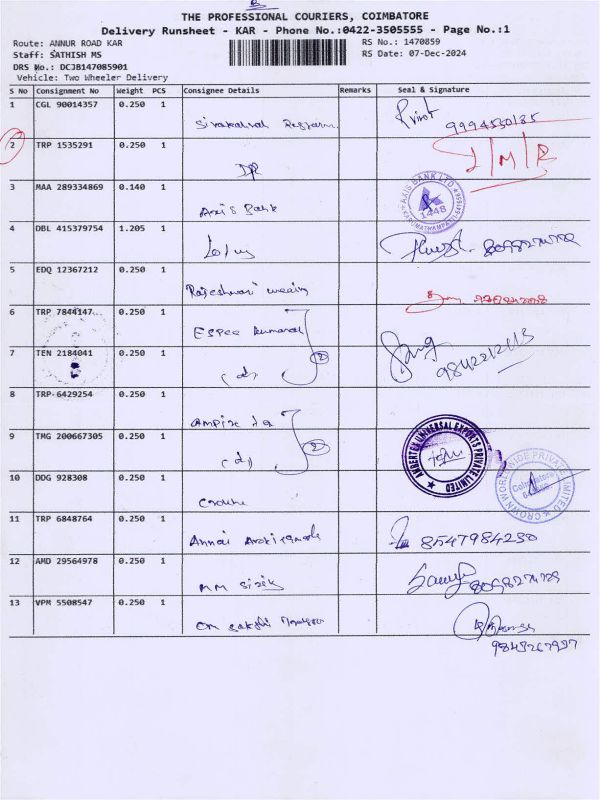 THE PROFESSIONAL COURIERS, COIMBATORE
Delivery Runsheet - KAR - Phone No.:0422-3505555 - Page No.:1
Route: ANNUR ROAD KAR
Staff: SATHISH MS
DRS No.: DCJB147085901
Vehicle: Two Wheeler Delivery
RS No.: 1470859
RS Date: 07-Dec-2024
S No Consignment No Weight PCS Consignee Details Remarks Seal & Signature
1 CGL 90014357 0.250 1 9994550185
2 TRP 1535291 0.250 1 DR
3 MAA 289334869 0.140 1 Axis Bank AXIS BANK LTD 1448
4 DBL 415379754 1.205 1 Lotus
5 EDQ 12367212 0.250 1 Rajeshwari
6 TRP 7844147 0.250 1 Espee
7 TEN 2184041 0.250 1 (d) 2
8 TRP 6429254 0.250 1
9 TMG 200667305 0.250 1 (d) 2 AMBERTEX UNIVERSAL EXPORTS PRIVATE LIMITED
10 DDG 928308 0.250 1 Crown CROWN WORLDWIDE PRIVATE LIMITED Coimbatore
11 TRP 6848764 0.250 1 Annai 8547984230
12 AMD 29564978 0.250 1 MM
13 VPM 5508547 0.250 1 Om Sakthi
9843267937